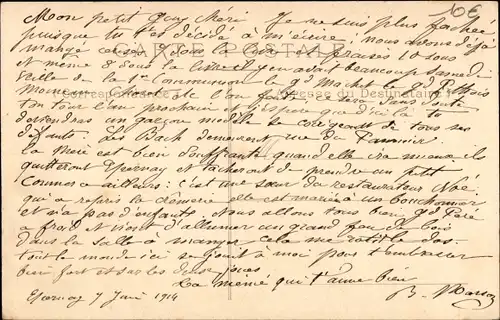 10€
Mon petit Guy chéri Je ne suis plus fachée
puisque tu t'es décidé à m'écrire; nous avons déjà
CARTE POSTALE
mangé fraises 10 sous
et même 8 sous la livre il y en avait beaucoup samedi
veille de la 1re Communion
Correspondance Adresse du Destinataire
ton tour l'an prochain et j'espère que d'ici là tu
deviendras un garçon modèle te corrigeant de tous ses
défauts. Les Bach demeurent rue de
la mère est bien souffrante quand elle ira mieux ils
quitteront Epernay et tâcheront de prendre un petit
Commerce ailleurs: c'est une sœur du restaurateur Noé
qui a repris la crèmerie elle est mariée à un bouchonnier
et n'a pas d'enfants. Nous allons tous bien gd Père
a froid et vient d'allumer un grand feu de bois
dans la salle à manger cela me rôtit le dos
tout le monde ici se joint à moi pour t'embrasser
bien fort sur les deux joues
La mémé qui t'aime bien
Epernay 7 Juin 1914